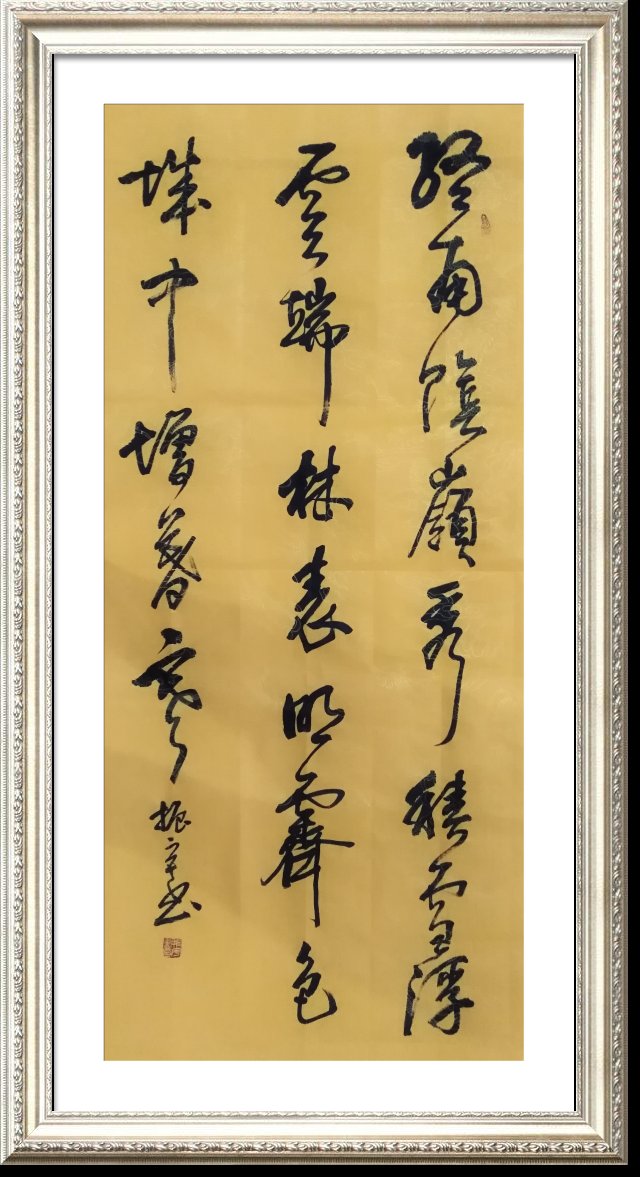 終南陰嶺秀積雪浮
雲端林表明霽色
城中增暮寒
振 书